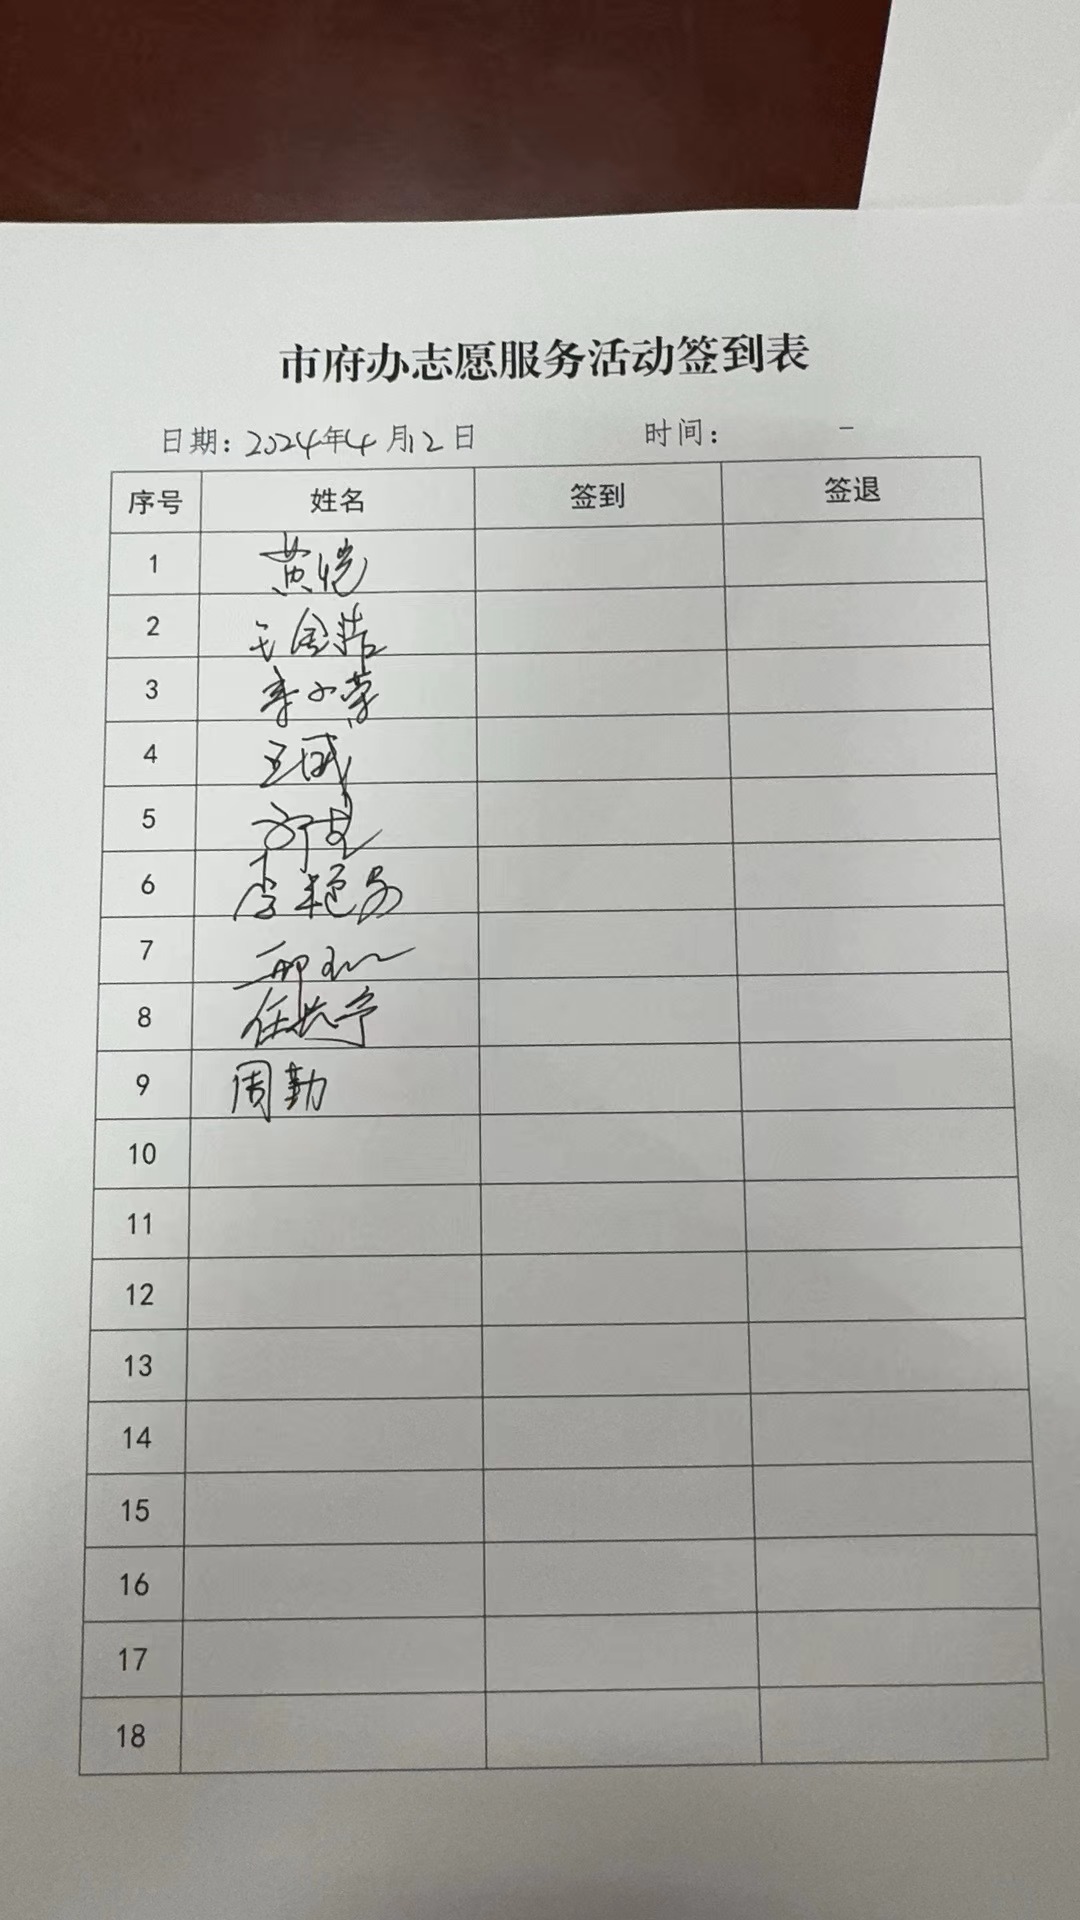 市府办志愿服务活动签到表
日期: 2024年4月12日 时间: –
序号 姓名 签到 签退
1 黄恺
2 王金浩
3 李小荣
4 王威
5
6 李艳芳
7 邢
8 任
9 周勤
10
11
12
13
14
15
16
17
18